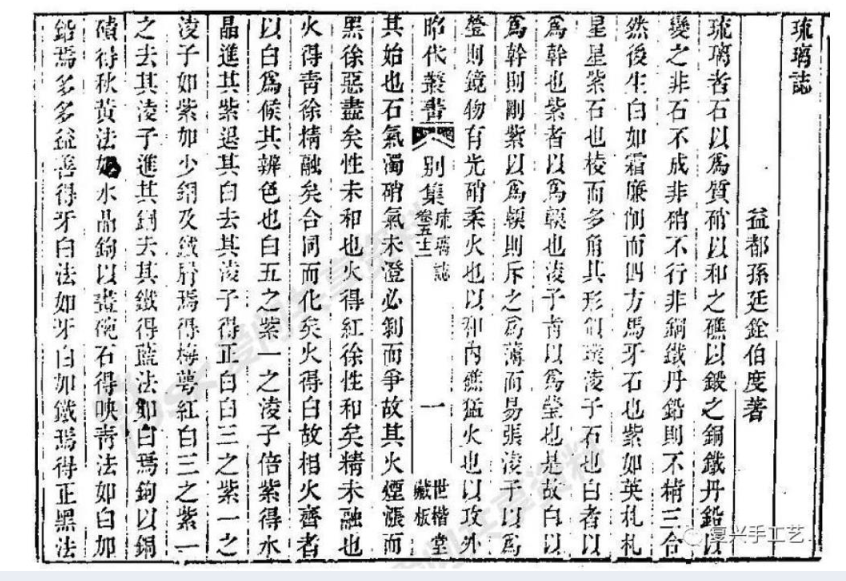 琉璃誌
益都孫廷銓伯度著
琉璃者石以爲質硝以和之礁以鍛之銅鐵丹鉛以
變之非石不成非硝不行非銅鐵丹鉛則不精三合
然後生白如霜廉削而四方馬牙石也紫如英札札
星星紫石也棱而多角其形似璞淩子石也白者以
爲幹也紫者以爲輭也淩子者以爲瑩也是故白以
爲幹則剛紫以爲輭則斥之爲薄而易張淩子以爲
瑩則鏡物有光硝柔火也以和內礁猛火也以攻外
昭代叢書 別集 琉璃誌 卷五十二 一 世楷堂 藏板
其始也石氣濁硝氣未澄必剝而爭故其火煙漲而
黑徐惡盡矣性未和也火得紅徐性和矣精未融也
火得青徐精融矣合同而化矣火得白故相火齊者
以白爲候其辨色也白五之紫一之淩子倍紫得水
晶進其紫退其白去其淩子得正白白三之紫一之
淩子如紫加少銅及鐵屑焉得梅萼紅白三之紫一
之去其淩子進其銅去其鐵得藍法如白焉鉤以銅
磧得秋黃法如水晶鉤以畫碗石得映青法如白加
鉛焉多多益善得牙白法如牙白加鐵焉得正黑法
复兴手工艺